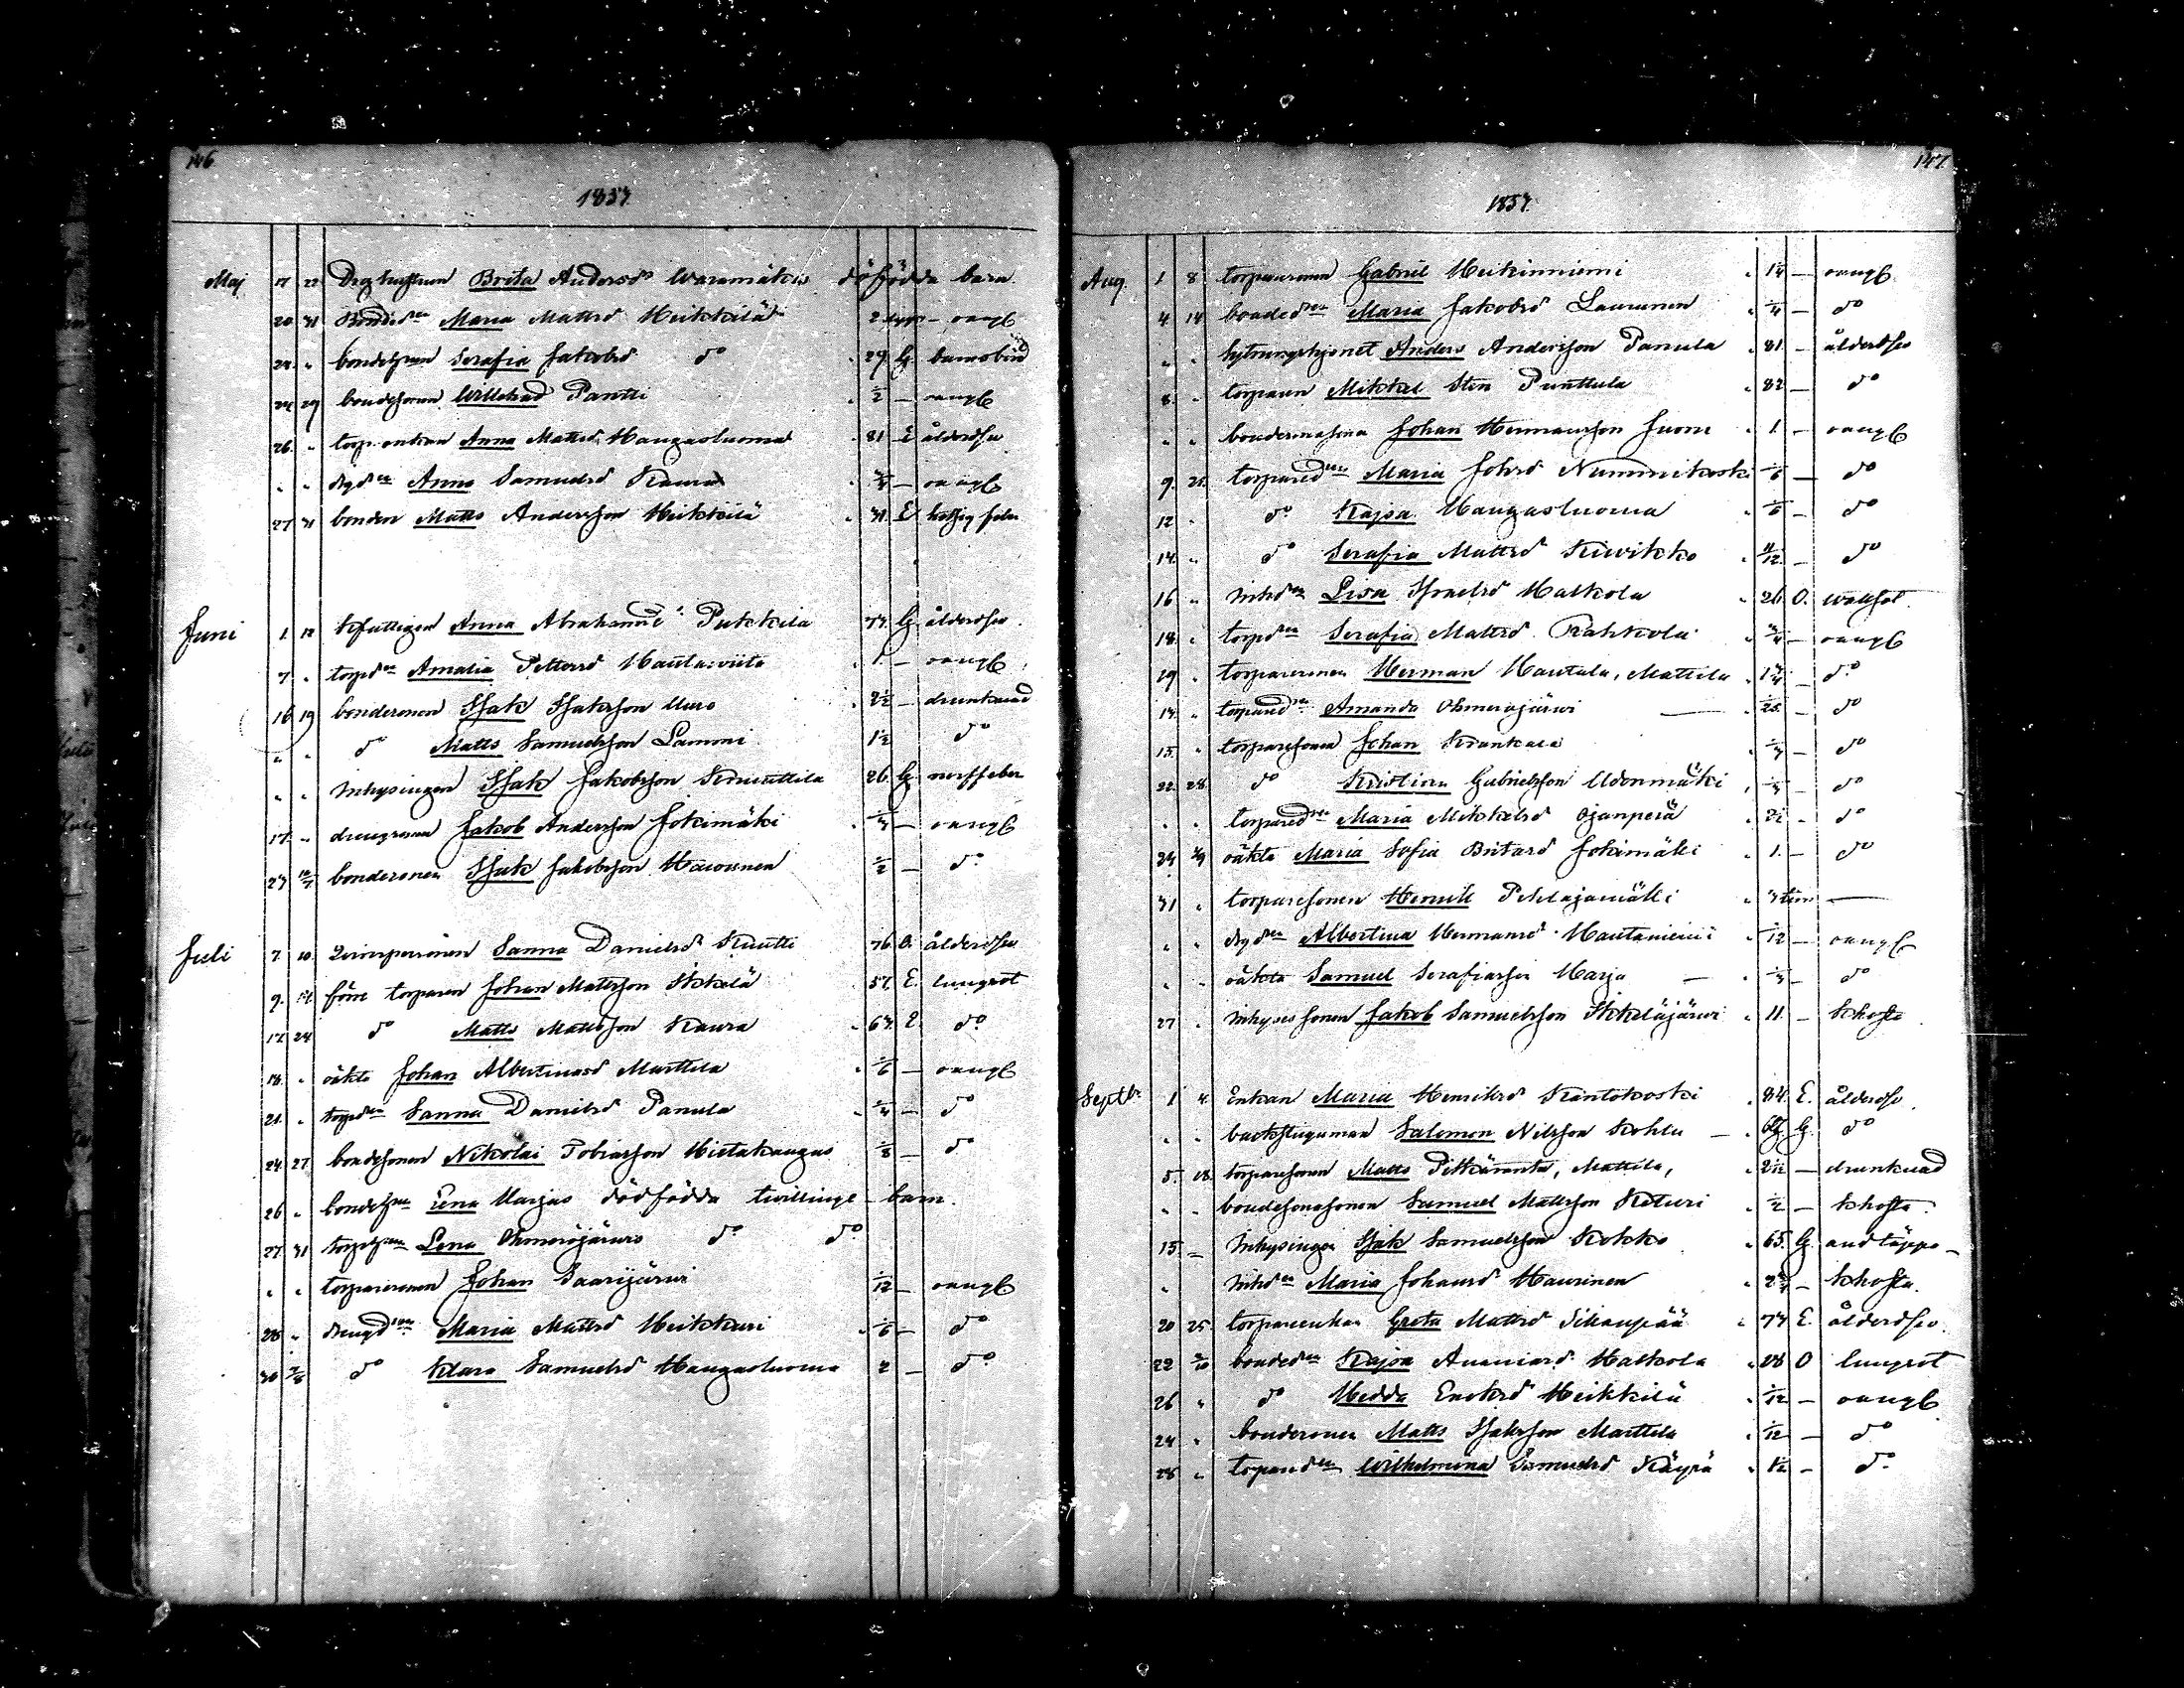 146
1857
Maj 17 22 Drghustrun Brita Andersdr Waramäkis döfödda barn.
20 31 Bondedrn Maria Mattsd Heikkilä 2 – oangl
24 " bondehrun Serafia Jakobsd do 29 G barnsbörd
24 29 bondesonen Willehad Pantti 1/2 – oangl
26 " torp. enkan Anna Mattsd Kangasluoma 81 E ålderdsv
" " drgdrn Anna Samuelsd Kaura – oangl
27 31 bonden Matts Andersson Heikkilä 31 E hetsig feber
Juni 1 12 bfattigen Anna Abrahamsd Pukkila 77 G ålderdsv.
7 " torpdrn Amalia Pettersd Hautawiita 1 – oangl
16 19 bondesonen Isak Isaksson Uuro 2 1/2 – drunknad
" " do Matts Samuelsson Lammi 1 1/2 do
" " inhysingen Isak Jakobsson Knuuttila 26 G nerffeber
17 – drengsonen Jakob Andersson Jokimäki – oangl
27 12/7 bondesonen Isak Jakobsson Haurunen 1/2 – do
Juli 7 10 Qvinspersonen Sanna Danielsd Knutti 76 O. ålderdsv
9. 12 förre torparen Johan Mattsson Ikkelä 57. E. lungsot
17. 24 do Matts Mattsson Kaura 67. E. do
18. " oäkta Johan Albertinasd Marttila 1/6 – oangl
21. " torpdrn Sanna Danielsd Panula 1/4 – do
24 27 bondesonen Nikolai Tobiasson Hietakangas – do
26 " bondehrn Lena Harjas dödfödda twillinge barn.
27. 31 torpehrn Lena Ohmeröjärwis do do
" " torparesonen Johan Saarijärwi 1/12 – oangl
28 " drengdrn Maria Mattsd Heikkuri 1/6 – do
30 2/8 do Klara Samuelsd Kangasluoma 2 – do
147
1857.
Aug. 1 8 torparesonen Gabriel Heikinniemi – oangl
4 14 bondedrn Maria Jakobsd Laurunen 1/4 – do
" " sytningshjonet Anders Andersson Panula 81. – ålderdsv
8. " torparen Mikkel Sten Punttula 82 – do
" " bondemasona Johan Hermansson Juoni 1. – oangl
9. 25. torparedrn Maria Johsd Nummikoski 1/6 – do
12 " do Kajsa Kangasluoma 1/6 – do
14. " do Serafia Mattsd Kiwikko 11/12 – do
16 " inhdrn Lisa Israelsd Kalkola 26. O. wattsot.
18. " torpdrn Serafia Mattsd Rahkola 3/4 – oangl
19 " torparesonen Herman Hautala, Mattila 1 3/4 – do
14. " torparedrn Amanda Ohmeröjärwi – do
15. " torparesonen Johan Krankala – do
22. 28. do Kristian Gabrielsson Udenmäki – do
" " torparedrn Maria Mikkelsd Ojanperä – do
24 1/9 oäkta Maria Sofia Britasd Jokimäki 1. – do
31 " torparesonen Henrik Pehlajamäki 3 tim –
" " drgdrn Albertina Hermansd Hautaniemi 1/12 – oangl
" " oäkta Samuel Serafiasson Harja – do
27 " inhysessonen Jakob Samuelsson Ikkeläjärwi 11. – khosta
Septbr 1 4. Enkan Maria Henriksd Käntokoski 84. E. ålderdsv.
" " backstuguman Salomon Nilsson Kohlu – G. do
5. 18. torparesonen Matts Pitkäranta, Mattila, – drunknad
" " bondesonasonen Samuel Mattsson Keturi 1/2 – khosta
15. – Inhysingen Isak Samuelsson Kokko 65. G. andtäppa –
" inhdrn Maria Johansd Haurinen – khosta.
20 25. torpareenkan Greta Mattsd Sikanpää 77 E. ålderdsv.
22 2/10 bondedrn Kajsa Ananiasd Kalkola 28 O lungsot
26 " do Hedda Enoksd Heikkilä 1/12 – oangl
24 " bondesonen Matts Isaksson Marttila 1/12 – do
28 " torparedrn Wilhelmina Samuelsd Käyrä 1 1/2 – do